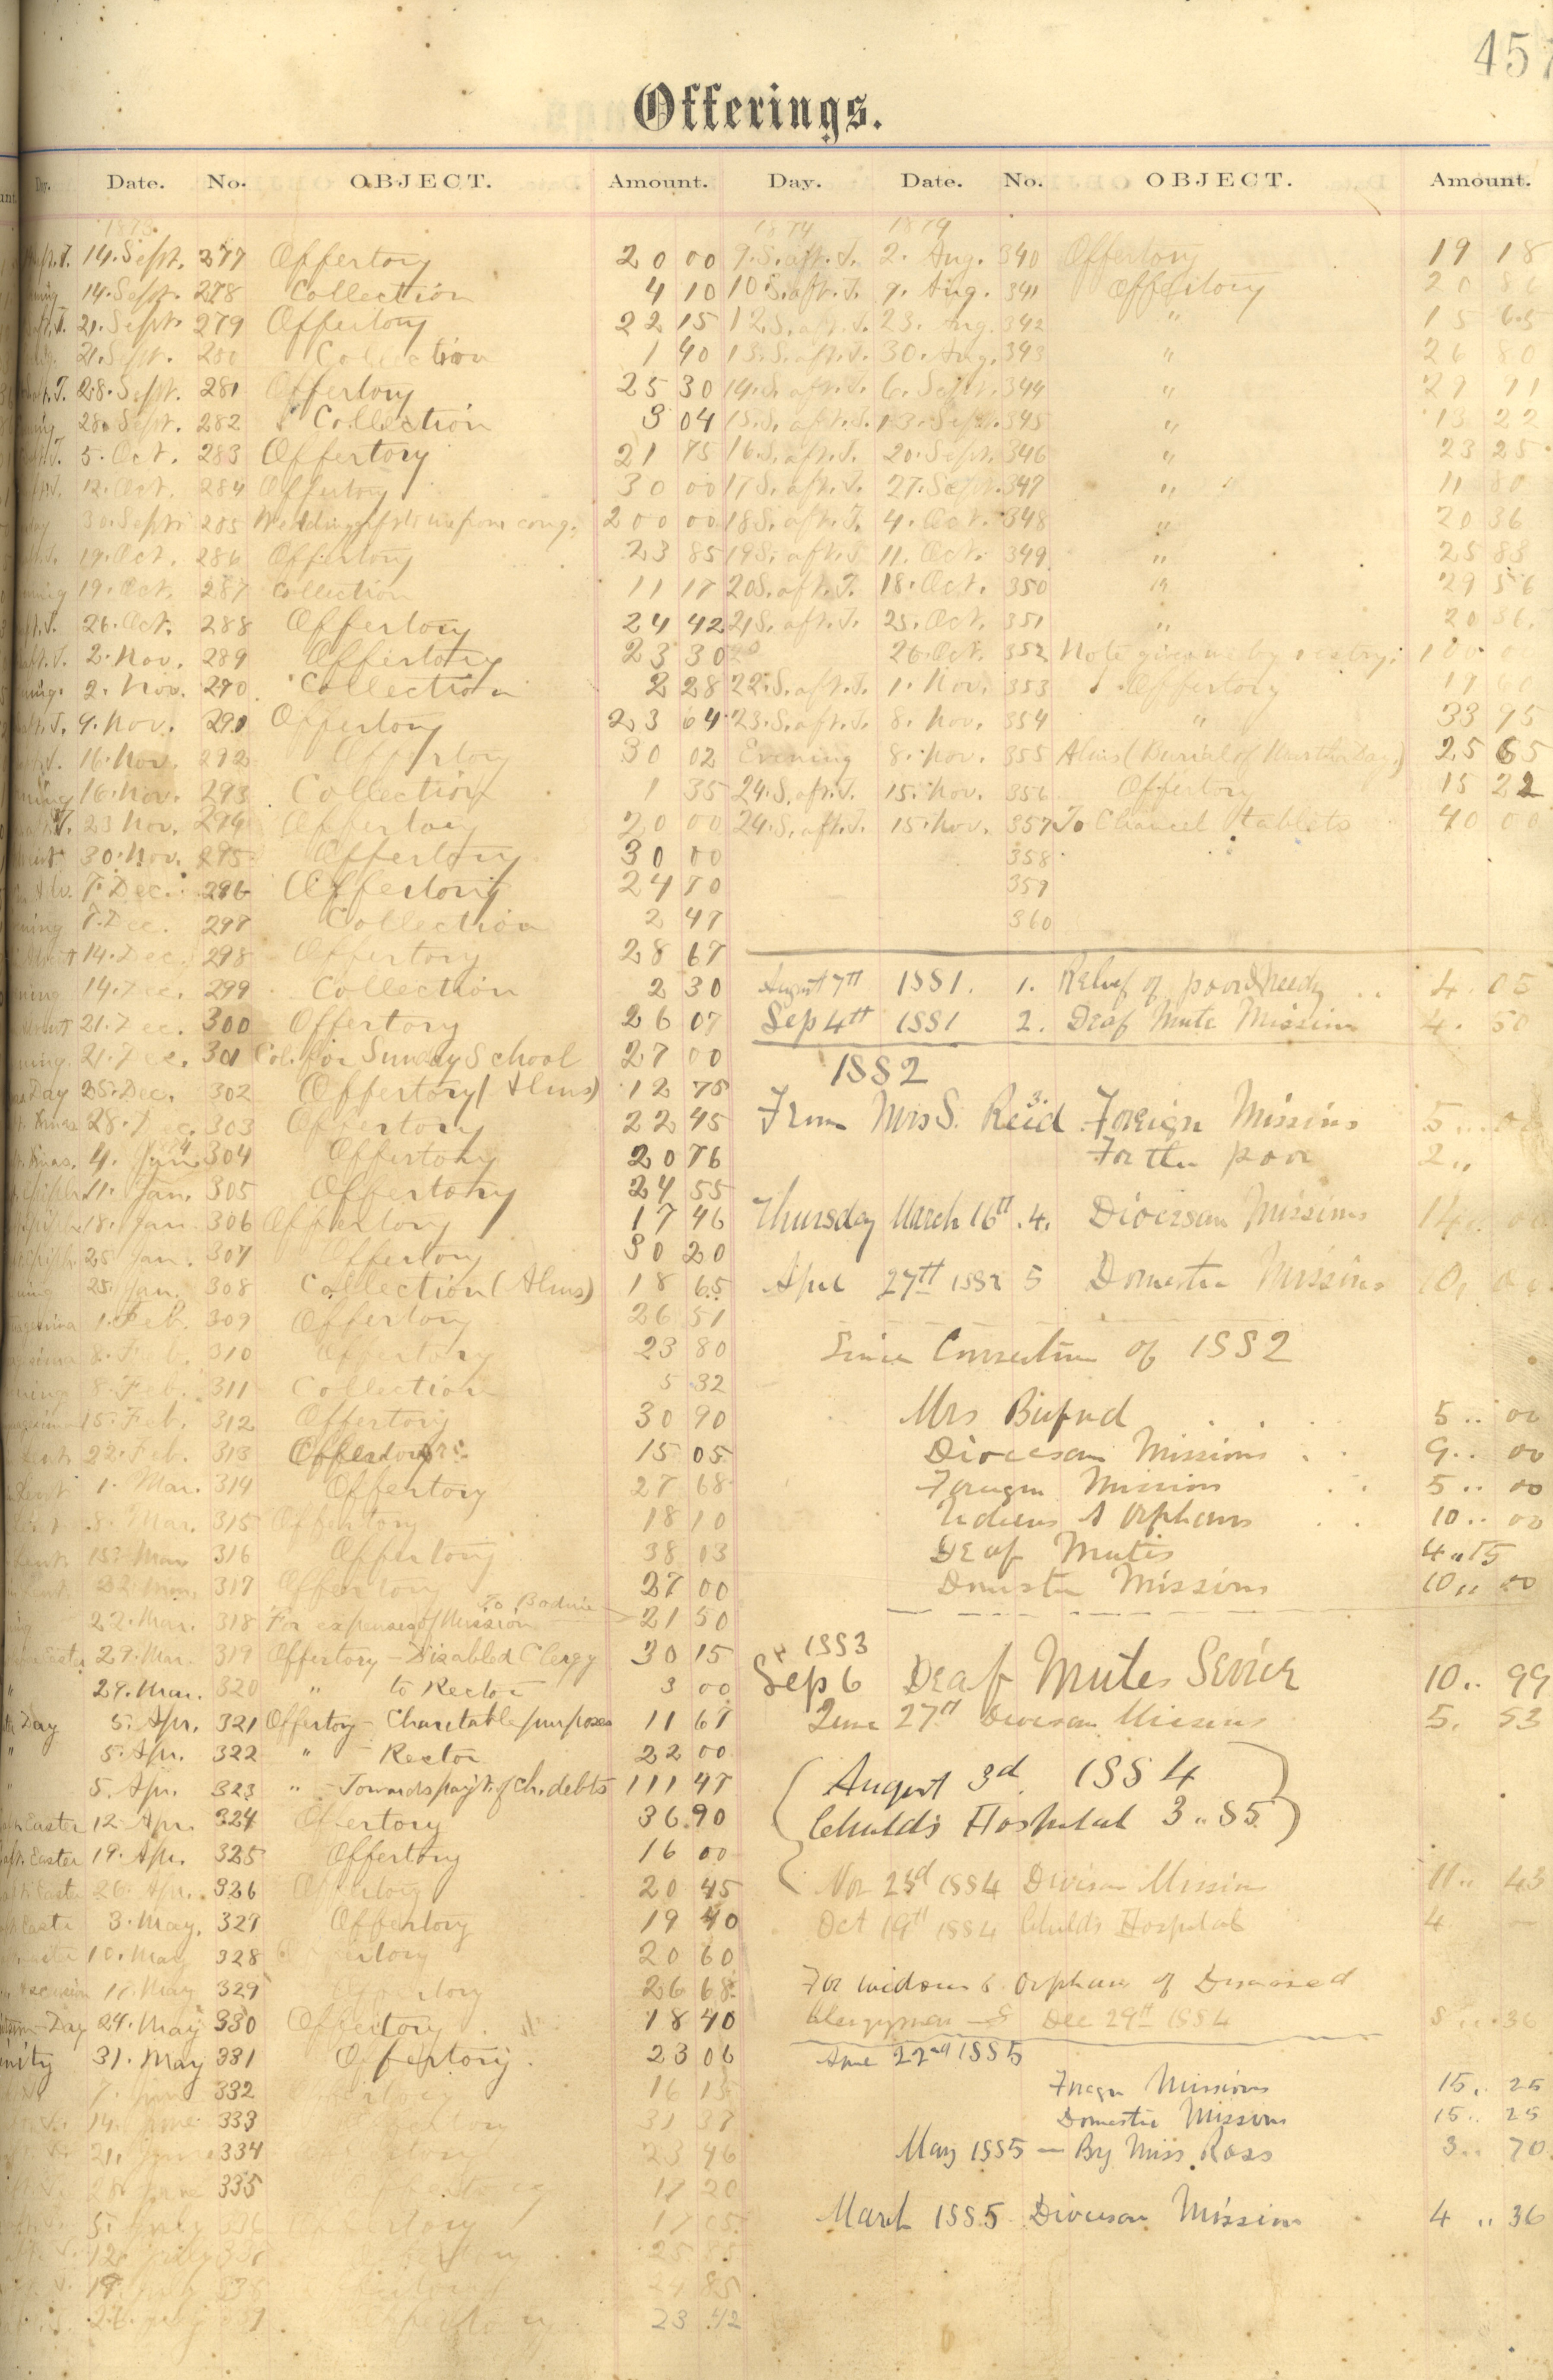 457
Offerings.
Day. Date. No. OBJECT. Amount. Day. Date. No. OBJECT. Amount.
1873
14. Sept. 277 Offertory 20 00
14. Sept. 278 Collection 4 10
21. Sept. 279 Offertory 22 15
21. Sept. 280 Collection 1 40
28. Sept. 281 Offertory 25 30
28. Sept. 282 Collection 3 04
5. Oct. 283 Offertory 21 75
12. Oct. 284 Offertory 30 00
30. Sept. 285 Wedding gift to us from cong. 200 00
19. Oct. 286 Offertory 23 85
19. Oct. 287 Collection 11 17
26. Oct. 288 Offertory 24 42
2. Nov. 289 Offertory 23 30
2. Nov. 290 Collection 2 28
9. Nov. 291 Offertory 23 64
16. Nov. 292 Offertory 30 02
16. Nov. 293 Collection 1 35
23 Nov. 294 Offertory 20 00
30. Nov. 295 Offertory 30 00
7. Dec. 296 Offertory 24 70
7. Dec. 297 Collection 2 47
14. Dec. 298 Offertory 28 67
14. Dec. 299 Collection 2 30
21. Dec. 300 Offertory 26 07
21. Dec. 301 Col. for Sunday School 27 00
Day 25. Dec. 302 Offertory (Alms) 12 75
28. Dec. 303 Offertory 22 45
1874
4. Jan. 304 Offertory 20 76
11. Jan. 305 Offertory 24 55
18. Jan. 306 Offertory 17 46
25 Jan. 307 Offertory 30 20
25. Jan. 308 Collection (Alms) 18 65
1. Feb. 309 Offertory 26 51
8. Feb. 310 Offertory 23 80
8. Feb. 311 Collection 5 32
15. Feb. 312 Offertory 30 90
22. Feb. 313 Offertory 15 05
1. Mar. 314 Offertory 27 68
8. Mar. 315 Offertory 18 10
15. Mar. 316 Offertory 38 03
22. Mar. 317 Offertory 27 00
22. Mar. 318 For expenses of Mission To Bodine 21 50
29. Mar. 319 Offertory – Disabled Clergy 30 15
" 29. Mar. 320 " to Rector 3 00
Day 5. Apr. 321 Offertory – Charitable purposes 11 67
" 5. Apr. 322 " – Rector 22 00
" 5. Apr. 323 " – Towards pay't. of Ch. debts 111 47
Easter 12. Apr. 324 Offertory 36.90
aft. Easter 19. Apr. 325 Offertory 16 00
Easter 26. Apr. 326 Offertory 20 45
Easter 3. May. 327 Offertory 19 40
10. May 328 Offertory 20 60
17. May 329 Offertory 26 68
Day 24. May 330 Offertory 18 40
31. May 331 Offertory 23 06
7. June 332 Offertory 16 15
14. June 333 Offertory 31 37
21. June 334 Offertory 23 46
28. June 335 Offertory 17 20
5. July 336 Offertory 17 05
12. July 337
19. July 338
26. July 339 Offertory 23 42
1874 1874
9. S. aft. T. 2. Aug. 340 Offertory 19 18
10 S. aft. T. 9. Aug. 341 Offertory
12. S. aft. T. 23. Aug. 342 " 15 65
13. S. aft. T. 30. Aug. 343 " 26 80
14. S. aft. T. 6. Sept. 344 "
15. S. aft. T. 13. Sept. 345 " 13 22
16. S. aft. T. 20. Sept. 346 " 23 25
17 S. aft. T. 27. Sept. 347 " 11 80
18 S. aft. T. 4. Oct. 348 " 20 36
19 S. aft. T. 11. Oct. 349 " 25 83
20 S. aft. T. 18. Oct. 350 " 29 56
21 S. aft. T. 25. Oct. 351 " 20 36
26. Oct. 352 Note given me by vestry. 100 00
22. S. aft. T. 1. Nov. 353 Offertory 17 60
23. S. aft. T. 8. Nov. 354 " 33 95
Evening 8. Nov. 355 Alms (Burial of 25 65
24. S. aft. T. 15. Nov. 356 Offertory 15 22
24. S. aft. T. 15. Nov. 357 To Chancel tablets 40 00
358
359
360
August 7th 1881. 1. Relief of poor & needy 4. 05
Sep 4th 1881 2. Deaf Mute Mission 4. 50
1882
From Mrs S. Reid 3. Foreign Missions 5..00
For the poor 2 "
Thursday March 16th. 4. Diocesan Missions 14.. 00
April 27th 1882 5 Domestic Missions 10, 00
Since Convention of 1882
Mrs Buford 5.. 00
Diocesan Missions 9.. 00
Foreign Mission 5.. 00
Widows & Orphans 10.. 00
Deaf Mutes 4..15
Domestic Missions 10,, 00
1883
Sep 6 Deaf Mutes Service 10.. 99
June 27th Diocesan Missions 5. 53
August 3d. 1884
Child's Hospital 3..85
Nov 23d 1884 Diocesan Mission 11.. 43
Oct 19th 1884 Child's Hospital 4 –
For widows & Orphans of Deceased
Clergymen – Dec 29th 1884 8...36
April 22nd 1885
Foreign Missions 15.. 25
Domestic Missions 15.. 25
May 1885 – By Miss Ross 3.. 70
March 1885 Diocesan Missions 4 .. 36